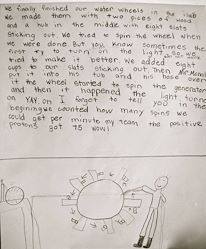 we finally finished our water wheels in the lab
we made them with two pices of wood
and a tub in the middle with eight slats
sticking out. We tried to spin the wheel when
we were done But you know sometimes the
first try to turn on the light so we
tried to make it better. We added eight
cups to our slats sticking out then Mr.
put it into his tub and his hose over
it the wheel started to spin the generator
and then it happened the light turned
on YAY. oh I forgot to tell you in the
begining we counted how many spins we
could get per minute my team the positive
protons got 75 wow!